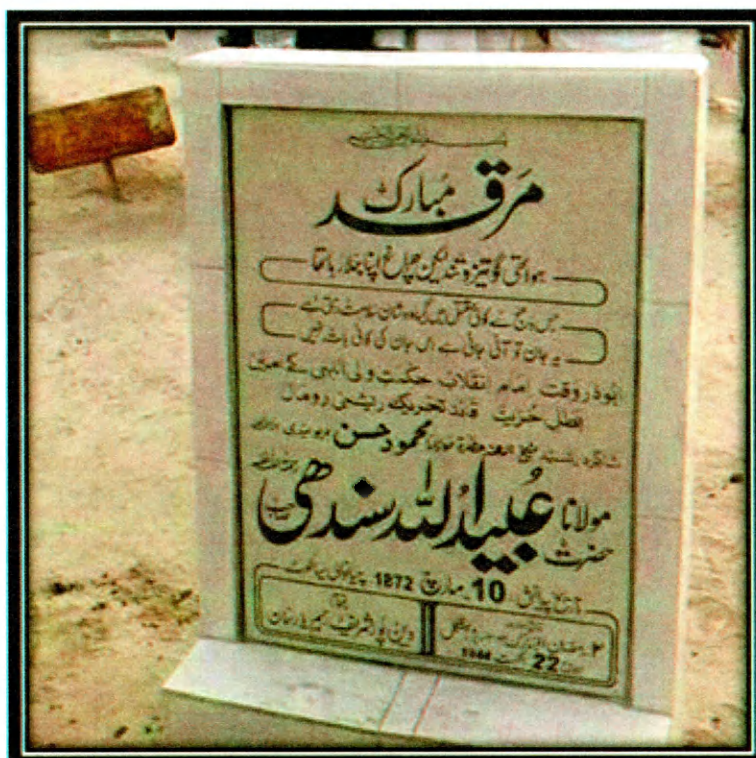 مرقد مبارک
ہوا تھی گو تیز و تند لیکن چراغ اپنا جلا رہا تھا
جس دھج سے کوئی مقتل میں گیا وہ شان سلامت رہتی ہے
یہ جان تو آنی جانی ہے اس جان کی کوئی بات نہیں
ابوذر وقت امام انقلاب حکمت ولی اللہی کے امین
بطل حریت قائد تحریک ریشمی رومال
شاگرد رشید شیخ الہند حضرۃ مولانا محمود حسن
حضرت مولانا عُبید اللہ سندھی
تاریخ پیدائش 10 مارچ 1872
۲ رمضان المبارک
22 اگست 1944
بمقام
دین پور شریف رحیم یار خان